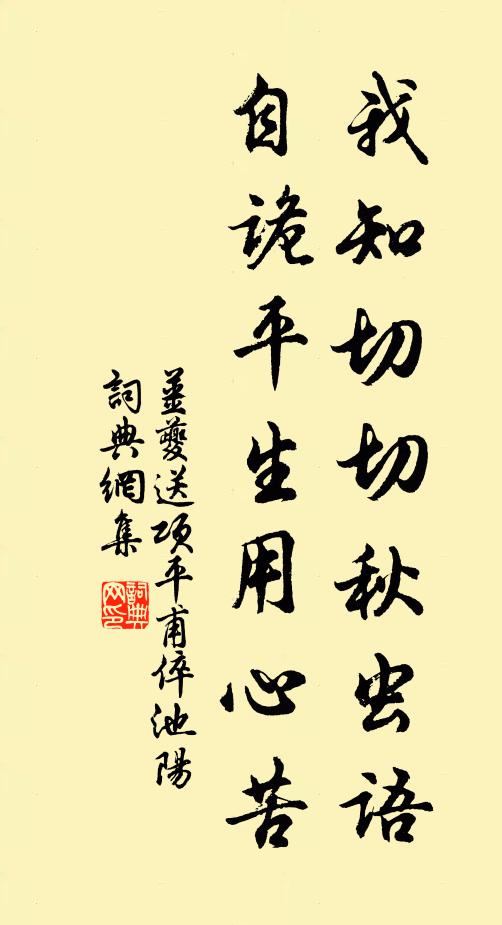 我知切切秋虫語
自詭平生用心苦
姜夔送項平甫倅池陽
詞典網集
詞典网印